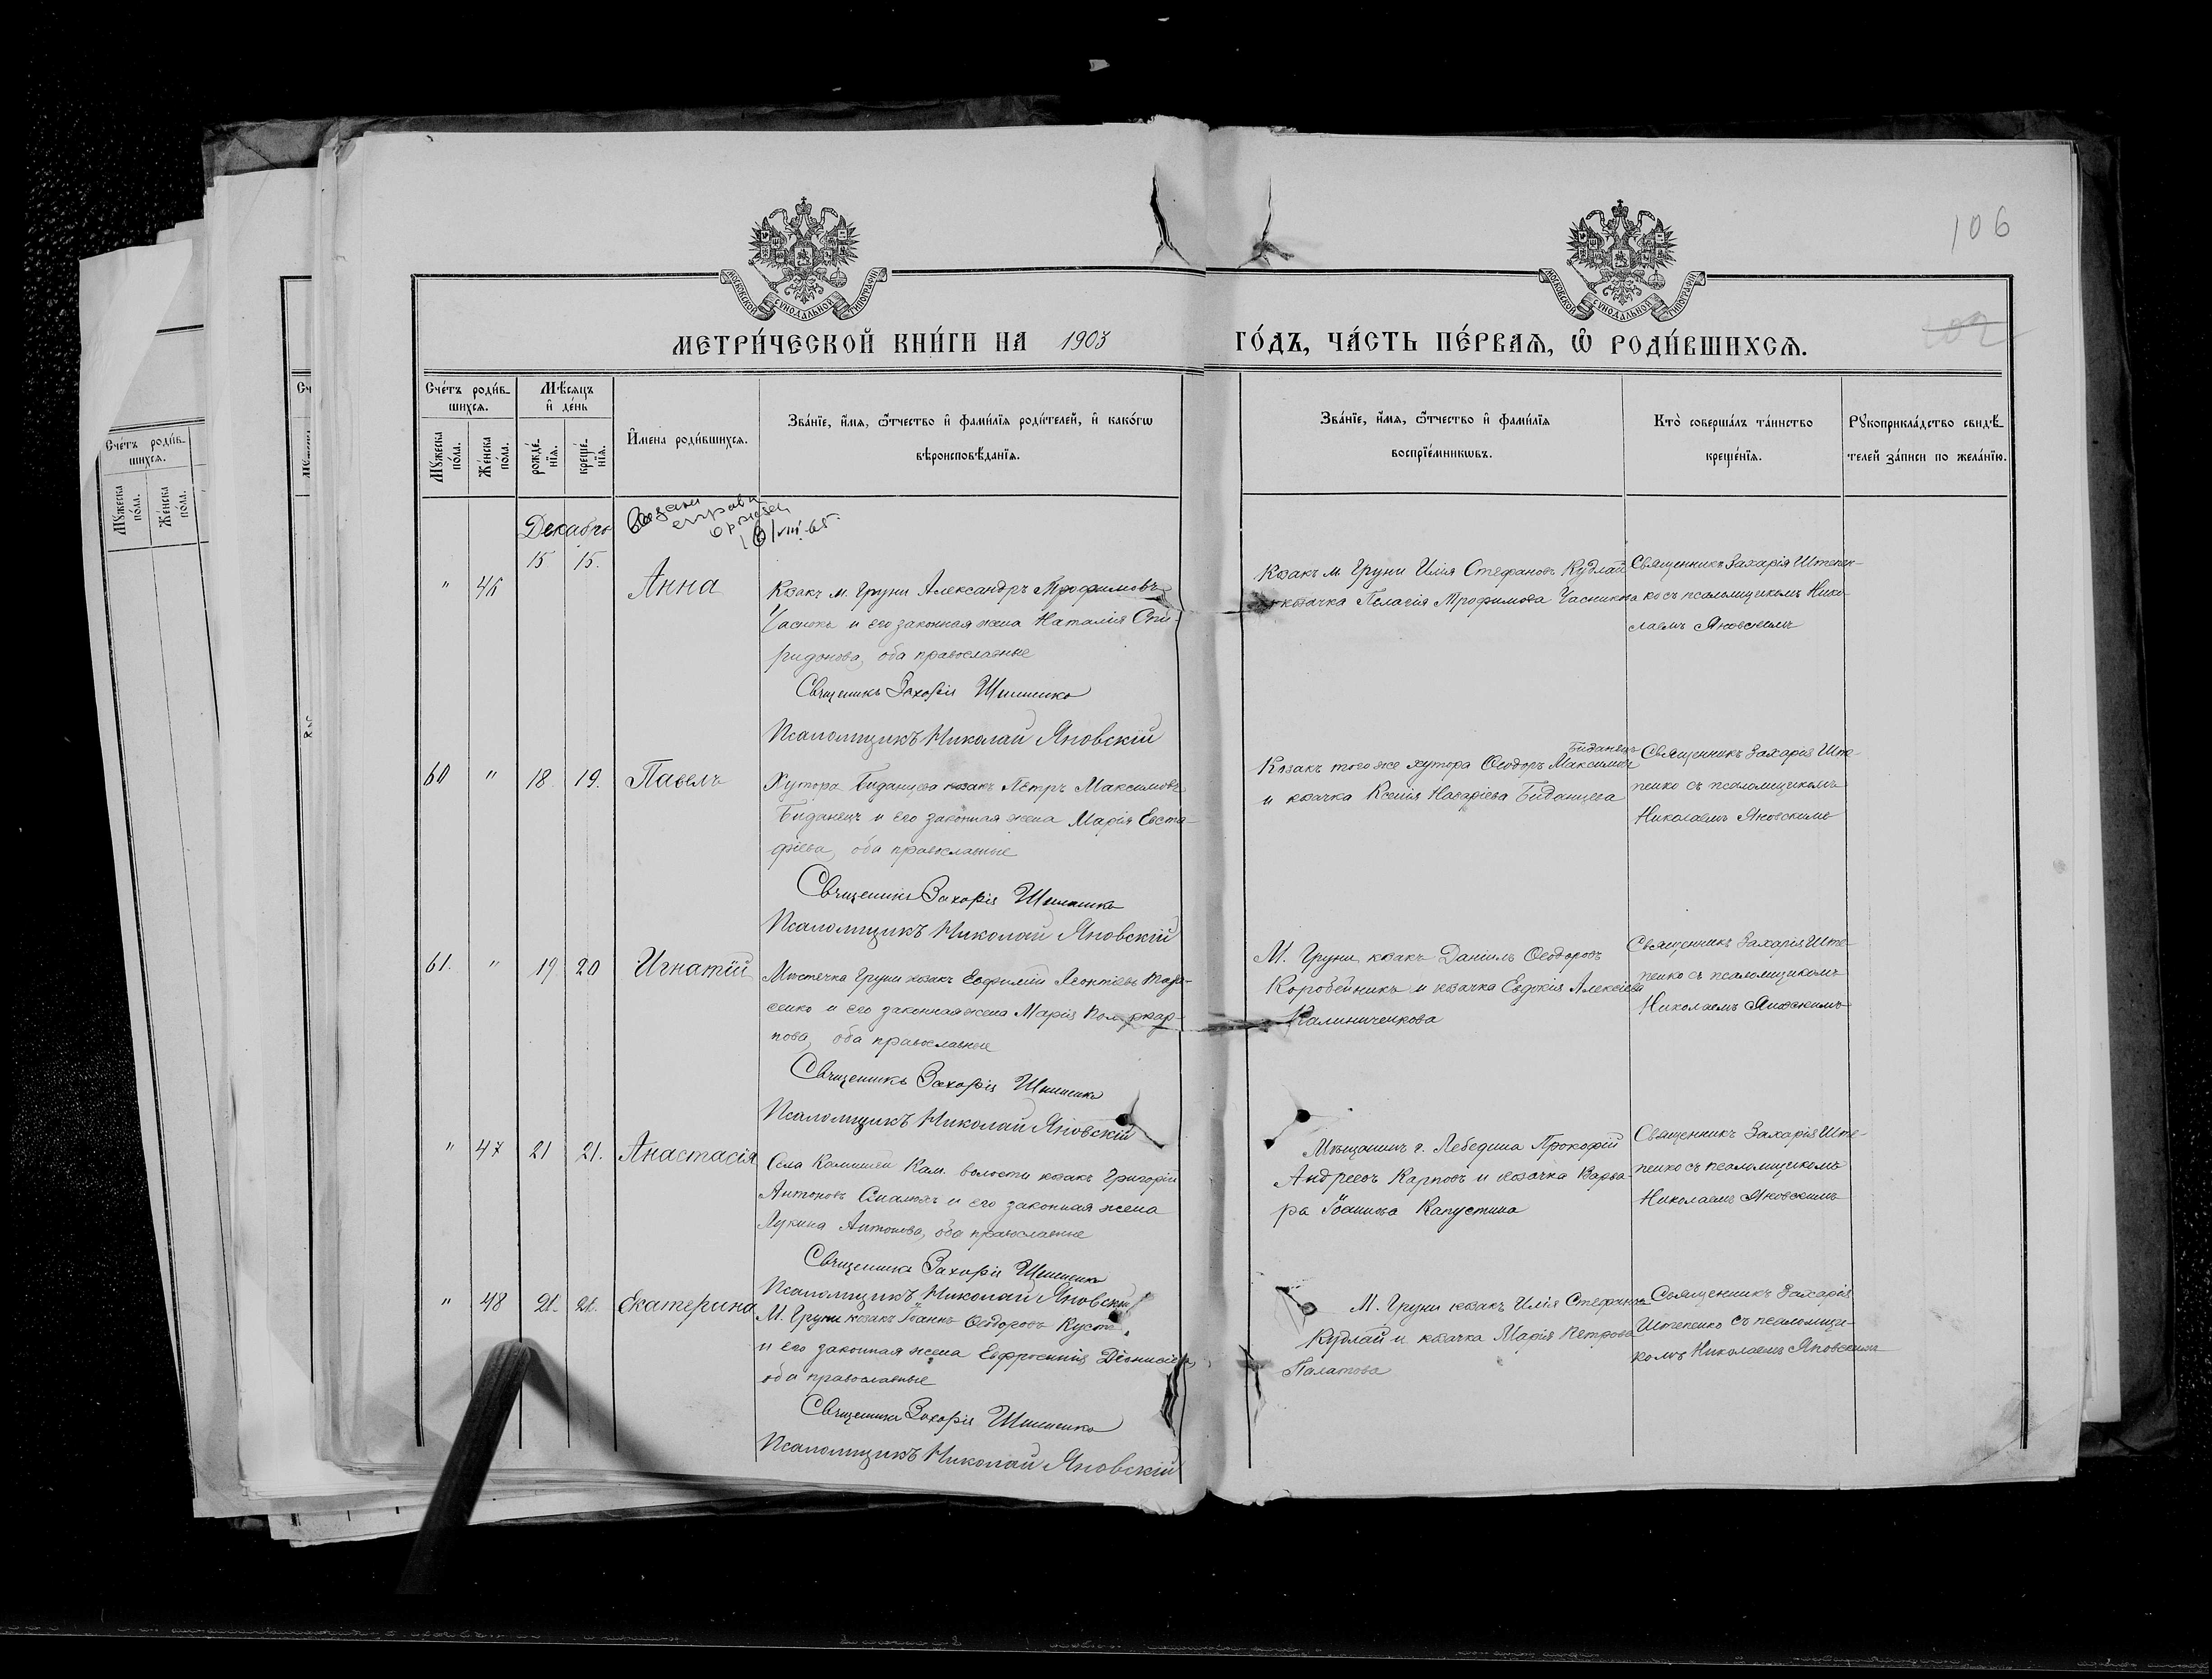 106
МОСКОВСКОЙ СѴНОДАЛЬНОЙ ТИПОГРАФІИ
МОСКОВСКОЙ СѴНОДАЛЬНОЙ ТИПОГРАФІИ
МЕТРИ́ЧЕСКОЙ КНИ́ГИ НА 1903 ГО́ДЪ, ЧА́СТЬ ПЕ́РВАѦ, Ѡ҆ РОДИ́ВШИХСѦ.
Сче́тъ роди́в-
шихсѧ.
Мꙋ́жеска по́ла.
Же́нска по́ла.
Мѣ́сѧцъ
и҆ де́нь
рожде́-
нїѧ.
креще́-
нїѧ.
И҆мена роди́вшихсѧ.
Зва́нїе, и҆́мѧ, ѻ҆́тчество и҆ фами́лїѧ роди́телей, и҆ како́гѡ
вѣроисповѣ́данїѧ.
Зва́нїе, и҆́мѧ, ѻ҆́тчество и҆ фами́лїѧ
воспрїе́мникѡвъ.
Кто̀ соверша́лъ та́инство
креще́нїѧ.
Рꙋкоприкла́дство свидѣ́-
телей за́писи по жела́нїю.
Декабрь
" 46 15 15. Анна
Козакъ м. Груни Александръ Трофимовъ
и его законная жена Наталія Спи-
ридонова, оба православные
Священникъ Захарія
Псаломщикъ Николай Яновскій
Козакъ м. Груни Илія Стефановъ Кудлай
козачка Пелагія Трофимова Часникова
Священникъ Захарія Штепен-
ко съ псаломщикомъ Нико-
лаемъ Яновскимъ
60 " 18. 19. Павелъ
Хутора Биданцева козакъ Петръ Максимовъ
Биданецъ и его законная жена Марія Евста-
фіева, оба православные
Священникъ Захарія
Псаломщикъ Николай Яновскій
Биданецъ
Козакъ того же хутора Ѳеодоръ Максимовъ
и козачка Ксенія Назаріева Биданцева
Священникъ Захарія Ште-
пенко съ псаломщикомъ
Николаемъ Яновскимъ
61. " 19 20 Игнатій
Мѣстечка Груни козакъ Евфимій Леонтіевъ Тара-
сенко и его законная жена Марія Поликар-
пова, оба православные
Священникъ Захарія
Псаломщикъ Николай Яновскій
М. Груни, козакъ Даніилъ Ѳеодоровъ
Коробейникъ и козачка Евдокія Алексіева
Калиниченкова
Священникъ Захарія Ште-
пенко съ псаломщикомъ
Николаемъ Яновскимъ
" 47 21 21. Анастасія
Села Камышей Кам. волости козакъ Григорій
Антоновъ и его законная жена
Антонова, оба православные
Священникъ Захарія
Псаломщикъ Николай Яновскій
Мѣщанинъ г. Лебедина Прокофій
Андреевъ Карповъ и козачка Варва-
ра Іоаннова Капустина
Священникъ Захарія Ште-
пенко съ псаломщикомъ
Николаемъ Яновскимъ
" 48 21. 21. Екатерина
М. Груни козакъ Іоаннъ Ѳеодоровъ
и его законная жена Евфросинія Діонисіева,
оба православные
Священникъ Захарія
Псаломщикъ Николай Яновскій
М. Груни козакъ Илія Стефановъ
Кудлай и козачка Марія Петрова
Палатова
Священникъ Захарія
Штепенко съ псаломщи-
комъ Николаемъ Яновскимъ